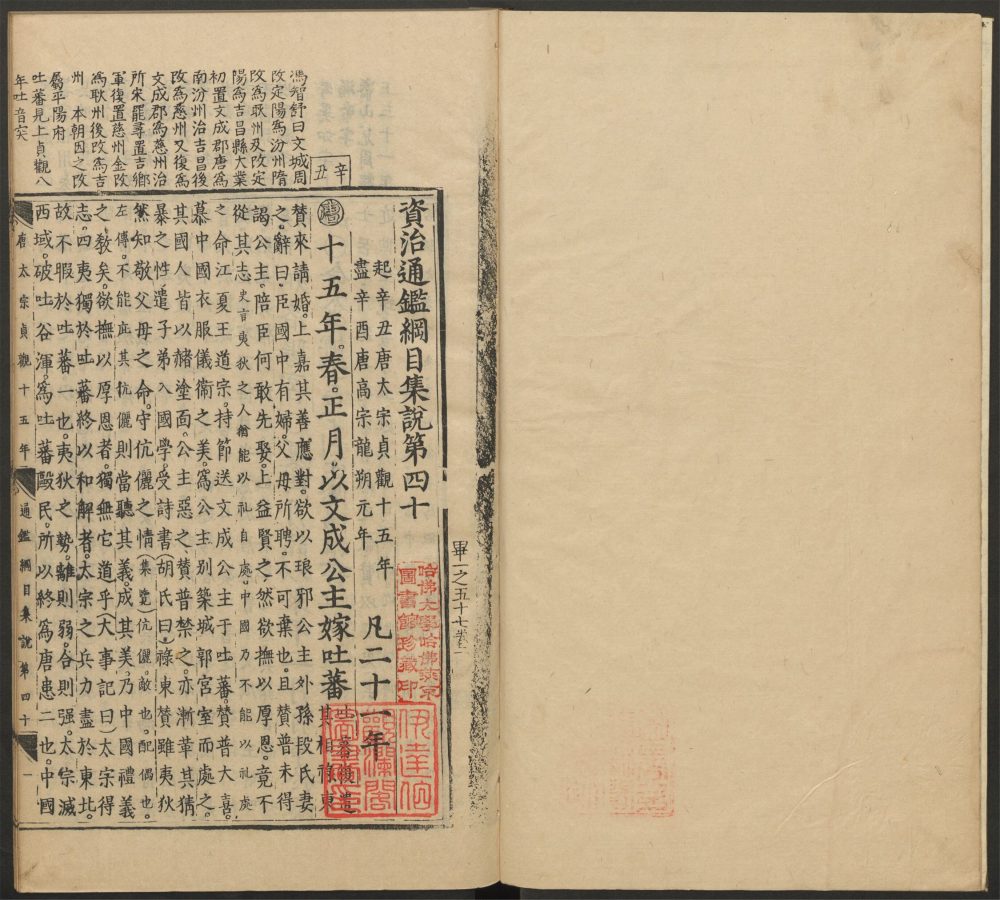 馮智舒曰文城周
改定陽爲汾州隋
改爲耿州及改定
陽爲吉昌縣大業
初置文成郡唐爲
南汾州治吉昌後
改爲慈州又復爲
文成郡爲慈州治
所宋罷尋置吉鄉
軍復置慈州金改
爲耿州後改爲吉
州 本朝因之改
屬平陽府
吐蕃見上貞觀八
年吐音突
辛
丑
資治通鑑綱目集說第四十
起辛丑唐太宗貞觀十五年
盡辛酉唐高宗龍朔元年
凡二十一年
十五年春正月以文成公主嫁吐蕃
吐蕃復遣
其相祿東
贊來請婚上嘉其善應對欲以琅邪公主外孫段氏妻
之辭曰臣國中有婦父母所聘不可棄也且贊普未得
謁公主陪臣何敢先娶上益賢之然欲撫以厚恩竟不
從其志史言夷狄之人猶能以礼自處中國乃不能以礼處
之命江夏王道宗持節送文成公主于吐蕃贊普大喜
慕中國衣服儀衛之美爲公主別築城郭宮室而處之
其國人皆以赭塗面公主惡之贊普禁之亦漸革其猜
暴之性遣子弟入國學受詩書胡氏曰祿東贊雖夷狄
然知敬父母之命守伉儷之情集覽伉儷敵也配偶也
左傳不能庇其伉儷則當聽其義成其美乃中國禮義
之教矣欲撫以厚恩者獨無它道乎大事記曰太宗得
志四夷獨於吐蕃終以和解者太宗之兵力盡於東北
故不暇於吐蕃一也夷狄之勢離則弱合則强太宗滅
西域破吐谷渾爲吐蕃毆民所以終爲唐患二也中國
唐太宗貞觀十五年
通鑑綱目集說第四十
一
哈佛大學哈佛燕京
圖書館珍藏印
觀瀾閣